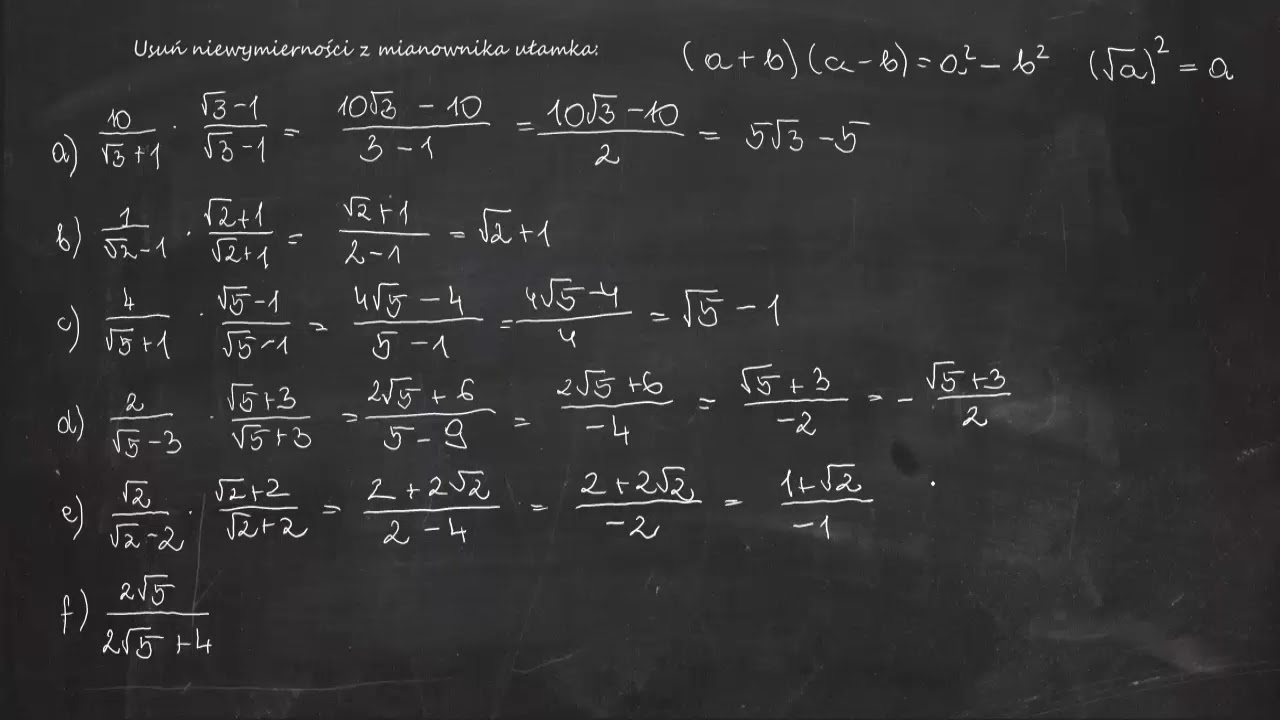 Usuń niewymierności z mianownika ułamka: (a+b)(a-b)=a²-b² (√a)²=a
a) 10/(√3+1) · (√3-1)/(√3-1) = (10√3-10)/(3-1) = (10√3-10)/2 = 5√3-5
b) 1/(√2-1) · (√2+1)/(√2+1) = (√2+1)/(2-1) = √2+1
c) 4/(√5+1) · (√5-1)/(√5-1) = (4√5-4)/(5-1) = (4√5-4)/4 = √5-1
d) 2/(√5-3) · (√5+3)/(√5+3) = (2√5+6)/(5-9) = (2√5+6)/(-4) = (√5+3)/(-2) = -(√5+3)/2
e) √2/(√2-2) · (√2+2)/(√2+2) = (2+2√2)/(2-4) = (2+2√2)/(-2) = (1+√2)/(-1)
f) 2√5/(2√5+4)